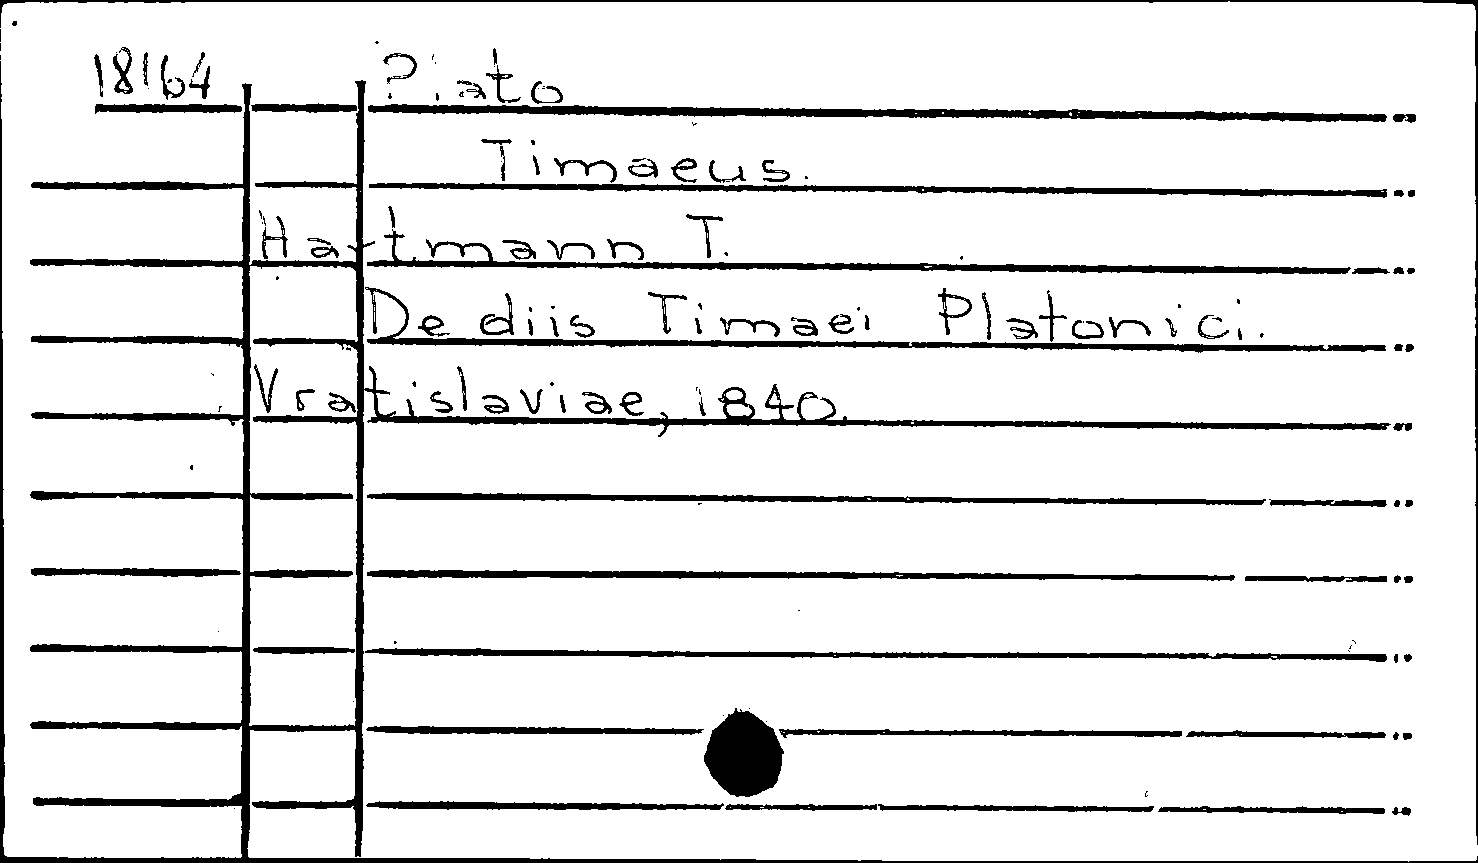 18164 Plato
Timaeus.
Hartmann T.
De diis Timaei Platonici.
Vratislaviae, 1840.